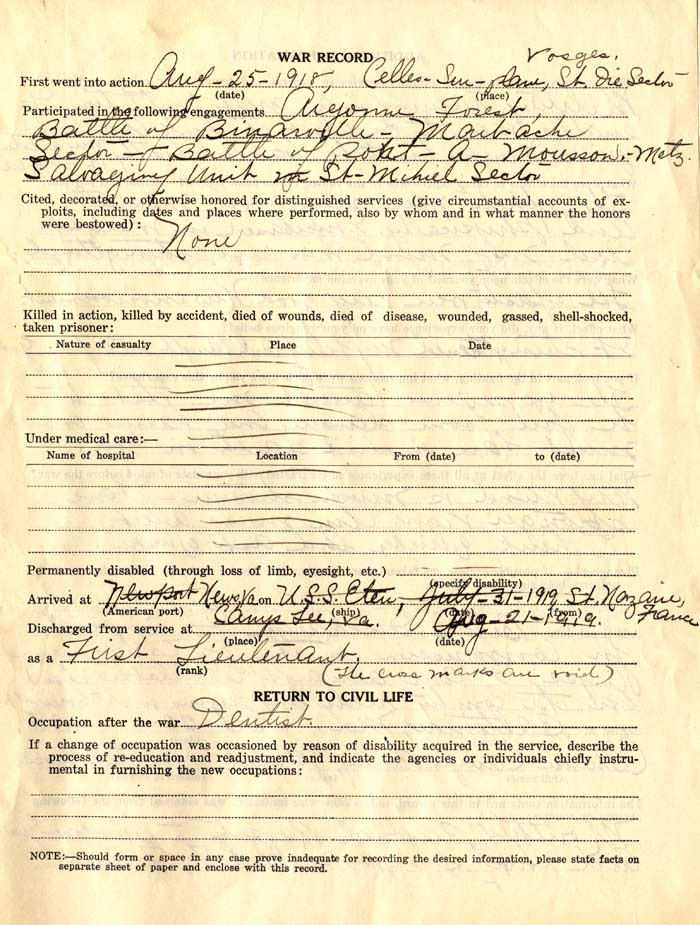 WAR RECORD
Vosges.
First went into action Aug-25-1918, Celles-Sur-plane, St. Die Sector
(date) (place)
Participated in the following engagements Argonne Forest,
Battle of Binarville - Marbache
Sector - Battle of Pont-A-Mousson.-Metz.
Salvaging Unit in St-Mihiel Sector
Cited, decorated, or otherwise honored for distinguished services (give circumstantial accounts of ex-
ploits, including dates and places where performed, also by whom and in what manner the honors
were bestowed):
None
Killed in action, killed by accident, died of wounds, died of disease, wounded, gassed, shell-shocked,
taken prisoner:
Nature of casualty Place Date
Under medical care:—
Name of hospital Location From (date) to (date)
Permanently disabled (through loss of limb, eyesight, etc.)
(specify disability)
Arrived at Newport News Va on U.S.S. Eten, July-31-1919, St. Nazaire, France
(American port) (ship) (date) (from)
Discharged from service at Camp Lee, Va. Aug-21-1919.
(place) (date)
as a First Lieutenant.
(rank) (The cross marks are void)
RETURN TO CIVIL LIFE
Occupation after the war Dentist
If a change of occupation was occasioned by reason of disability acquired in the service, describe the
process of re-education and readjustment, and indicate the agencies or individuals chiefly instru-
mental in furnishing the new occupations:
NOTE:—Should form or space in any case prove inadequate for recording the desired information, please state facts on
separate sheet of paper and enclose with this record.